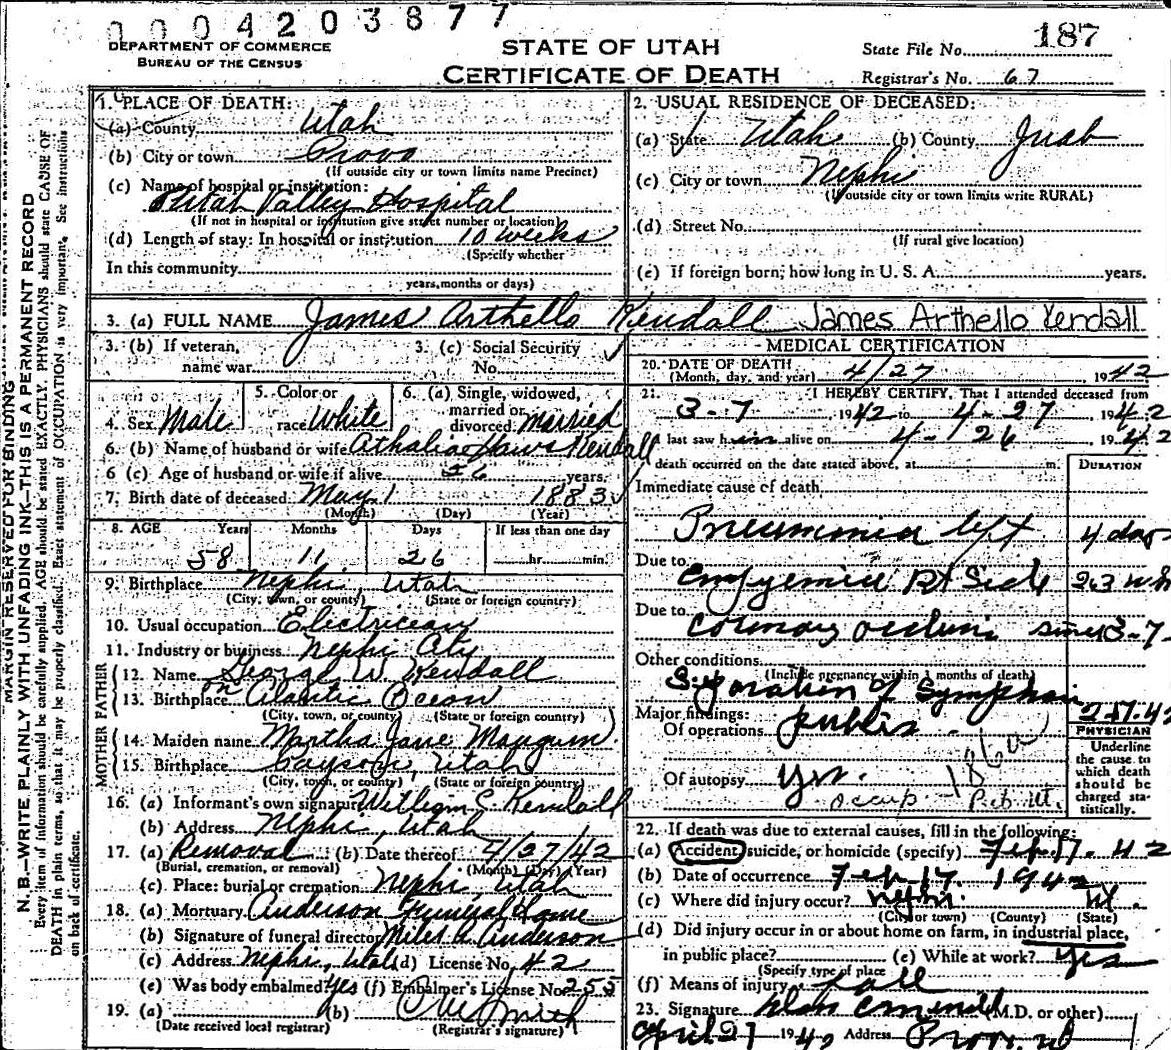 0004203877
DEPARTMENT OF COMMERCE
BUREAU OF THE CENSUS
STATE OF UTAH
CERTIFICATE OF DEATH
State File No. 187
Registrar's No. 67
MARGIN RESERVED FOR BINDING
N. B.—WRITE PLAINLY WITH UNFADING INK—THIS IS A PERMANENT RECORD
Every item of information should be carefully supplied. AGE should be stated EXACTLY. PHYSICIANS should state CAUSE OF
DEATH in plain terms, so that it may be properly classified. Exact statement of OCCUPATION is very important. See instructions
on back of certificate.
1. PLACE OF DEATH:
(a) County Utah
(b) City or town Provo
(If outside city or town limits name Precinct)
(c) Name of hospital or institution:
Utah Valley Hospital
(If not in hospital or institution give street number or location)
(d) Length of stay: In hospital or institution 10 weeks
(Specify whether
In this community
years, months or days)
2. USUAL RESIDENCE OF DECEASED:
(a) State Utah (b) County Juab
(c) City or town Nephi
(If outside city or town limits write RURAL)
(d) Street No.
(If rural give location)
(e) If foreign born; how long in U. S. A. years.
3. (a) FULL NAME James Arthello Kendall James Arthello Kendall
3. (b) If veteran,
name war
3. (c) Social Security
No.
4. Sex Male
5. Color or
race White
6. (a) Single, widowed,
married or
divorced Married
6. (b) Name of husband or wife Athalia Haws Kendall
6 (c) Age of husband or wife if alive 56 years.
7. Birth date of deceased May 1 1883
(Month) (Day) (Year)
8. AGE Years Months Days If less than one day
58 11 26 hr. min.
9. Birthplace Nephi Utah
(City, town, or county) (State or foreign country)
10. Usual occupation Electricean
11. Industry or business Nephi City
FATHER
12. Name George W. Kendall
13. Birthplace on Atlantic Ocean
(City, town, or county) (State or foreign country)
MOTHER
14. Maiden name Martha Jane Mangum
15. Birthplace Payson, Utah
(City, town, or county) (State or foreign country)
16. (a) Informant's own signature William C. Kendall
(b) Address Nephi, Utah
17. (a) Removal (b) Date thereof 4/27/42
(Burial, cremation, or removal) (Month) (Day) (Year)
(c) Place: burial or cremation Nephi Utah
18. (a) Mortuary Anderson Funeral Home
(b) Signature of funeral director Miles A. Anderson
(c) Address Nephi, Utah (d) License No. 42
(e) Was body embalmed? Yes (f) Embalmer's License No. 255
19. (a) (b) Smith
(Date received local registrar) (Registrar's signature)
MEDICAL CERTIFICATION
20. DATE OF DEATH
(Month, day, and year) 4/27 1942
21. I HEREBY CERTIFY, That I attended deceased from
3-7 1942 to 4-27 1942
last saw him alive on 4-26 1942
death occurred on the date stated above, at m.
DURATION
Immediate cause of death
Pneumonia left 4 days
Due to
Empyemia Rt Side 2-3 wk
Due to
Coronary occlusion since 3-7
Other conditions
(Include pregnancy within 3 months of death)
Separation of Symphisis 2-17-42
Major findings: pubis
Of operations
186a
Of autopsy yes.
occup.
PHYSICIAN
Underline
the cause to
which death
should be
charged sta-
tistically.
22. If death was due to external causes, fill in the following:
(a) Accident, suicide, or homicide (specify) Feb 17. 42
(b) Date of occurrence Feb 17. 1942
(c) Where did injury occur? Nephi Ut.
(City or town) (County) (State)
(d) Did injury occur in or about home on farm, in industrial place,
in public place? (e) While at work? yes
(Specify type of place
(f) Means of injury fall
23. Signature (M.D. or other)
April 27 1942 Address Provo, Ut